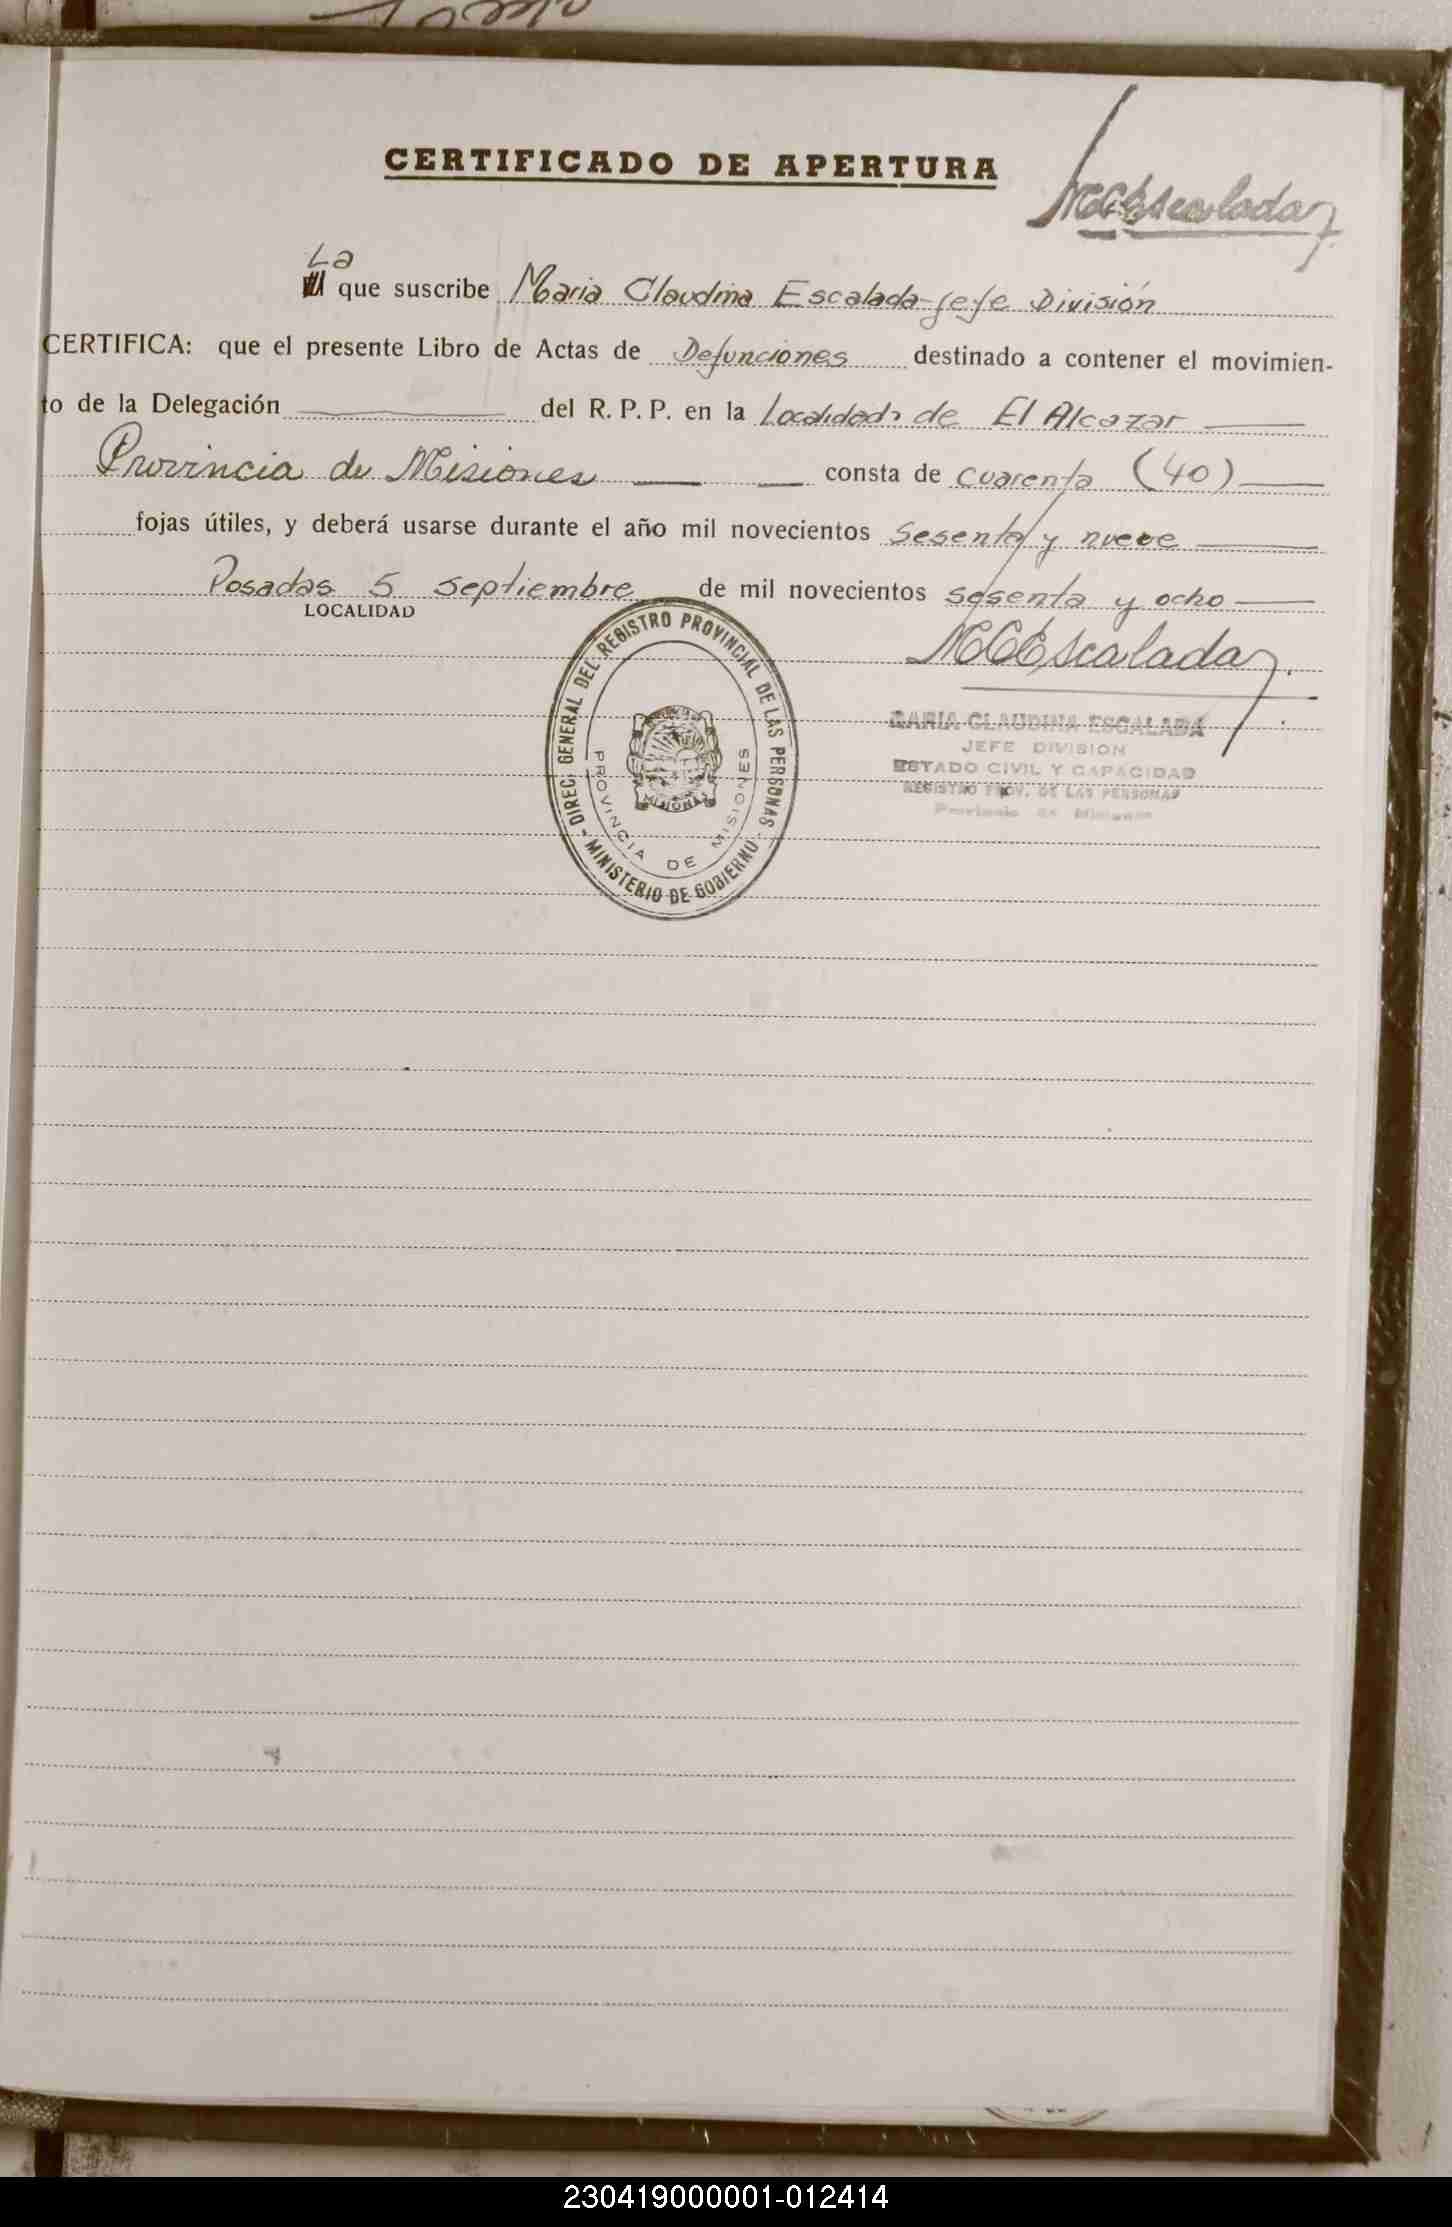 CERTIFICADO DE APERTURA
MCEscalada
La
que suscribe Maria Claudina Escalada-Jefe División
CERTIFICA: que el presente Libro de Actas de Defunciones destinado a contener el movimien-
to de la Delegación del R. P. P. en la Localidad de El Alcazar
Provincia de Misiones consta de cuarenta (40)
fojas útiles, y deberá usarse durante el año mil novecientos sesenta y nueve
Posadas 5 septiembre de mil novecientos sesenta y ocho
LOCALIDAD
MCEscalada
DIREC. GENERAL DEL REGISTRO PROVINCIAL DE LAS PERSONAS - MINISTERIO DE GOBIERNO -
PROVINCIA DE MISIONES
MISIONES
MARIA CLAUDINA ESCALADA
JEFE DIVISION
ESTADO CIVIL Y CAPACIDAD
REGISTRO PROV. DE LAS PERSONAS
Provincia de Misiones
230419000001-012414